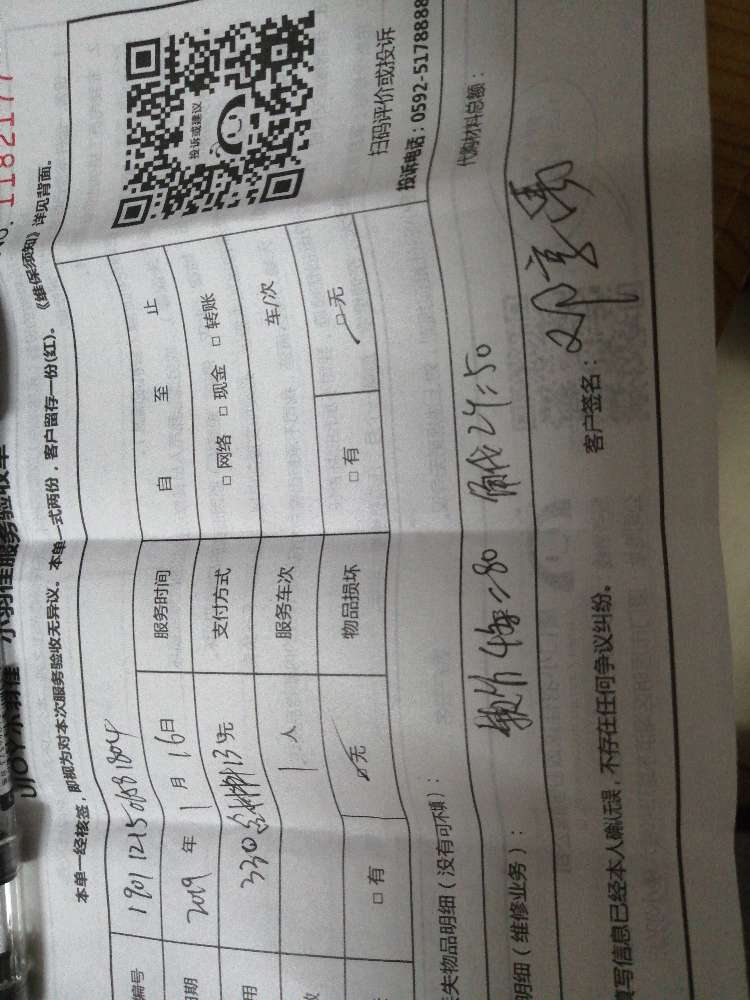 No. 1182177
UJOY水羽佳 水羽佳服务验收单
本单一经核签，即视为对本次服务验收无异议。本单一式两份，客户留存一份(红)。《维保须知》详见背面。
编号 190112150581804
期 2019 年 1 月 16 日 服务时间 自 至 止
用 330 含材料13元 支付方式 □ 网络 □ 现金 □ 转账
数 1 人 服务车次 车/次
□ 有 □ 无 物品损坏 □ 有 □ 无
投诉或建议
扫码评价或投诉
投诉电话：0592-5178888
失物品明细（没有可不填）：
明细（维修业务）： 4 = 80 24 = 50 代购材料总额：
写信息已经本人确认无误，不存在任何争议纠纷。 客户签名：